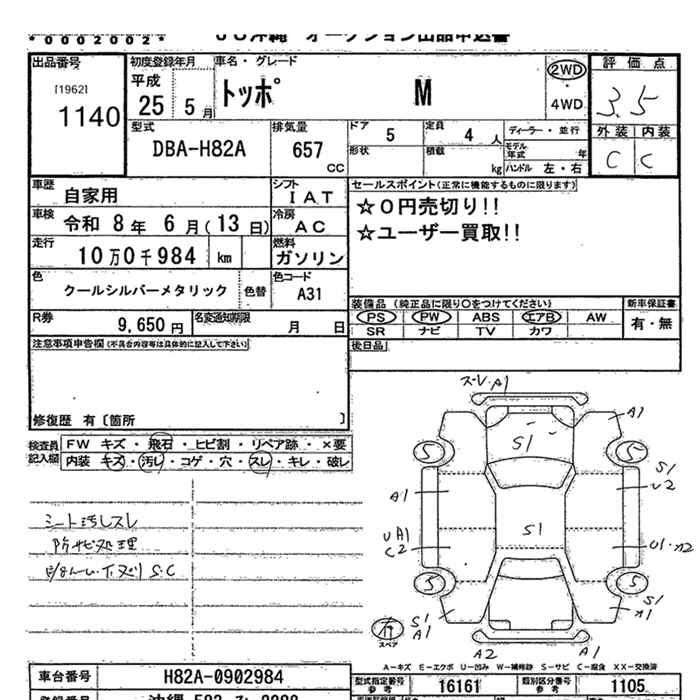 *0002002* JU沖縄 オークション出品申込書
出品番号
[1962]
1140
初度登録年月
平成
25 5月
車名・グレード
トッポ M
2WD
・
4WD
評価点
3.5
外装 内装
C C
型式
DBA-H82A
排気量
657
CC
ドア 5
定員 4 人
形状
積載 kg
ディーラー・並行
モデル年式 年
ハンドル 左・右
車歴
自家用
シフト
IAT
車検 令和 8年 6月(13日)
冷房
AC
走行 10万0千984 km
燃料
ガソリン
色
クールシルバーメタリック
色替
色コード
A31
R券 9,650円
名変通知期限 月 日
セールスポイント(正常に機能するものに限ります)
☆0円売切り!!
☆ユーザー買取!!
装備品 (純正品に限り○をつけてください)
新車保証書
PS PW ABS エアB AW
SR ナビ TV カワ
有・無
後日品
注意事項申告欄(不具合内容等は具体的に記入して下さい)
修復歴 有〔箇所 〕
検査員
記入欄
FW キズ・飛石・ヒビ割・リペア跡・×要
内装 キズ・汚レ・コゲ・穴・スレ・キレ・破レ
シート汚しスレ
防サビ処理
S.C
A1
A1
S1
5
5
S1
U2
A1
S1
UA1
C2
5
5
S1
S1
A1
スペア
A2
A1
A-キズ E-エクボ U-凹み W-補修跡 S-サビ C-腐食 XX-交換済
車台番号 H82A-0902984
型式指定番号
参考
16161
類別区分番号
参考
1105